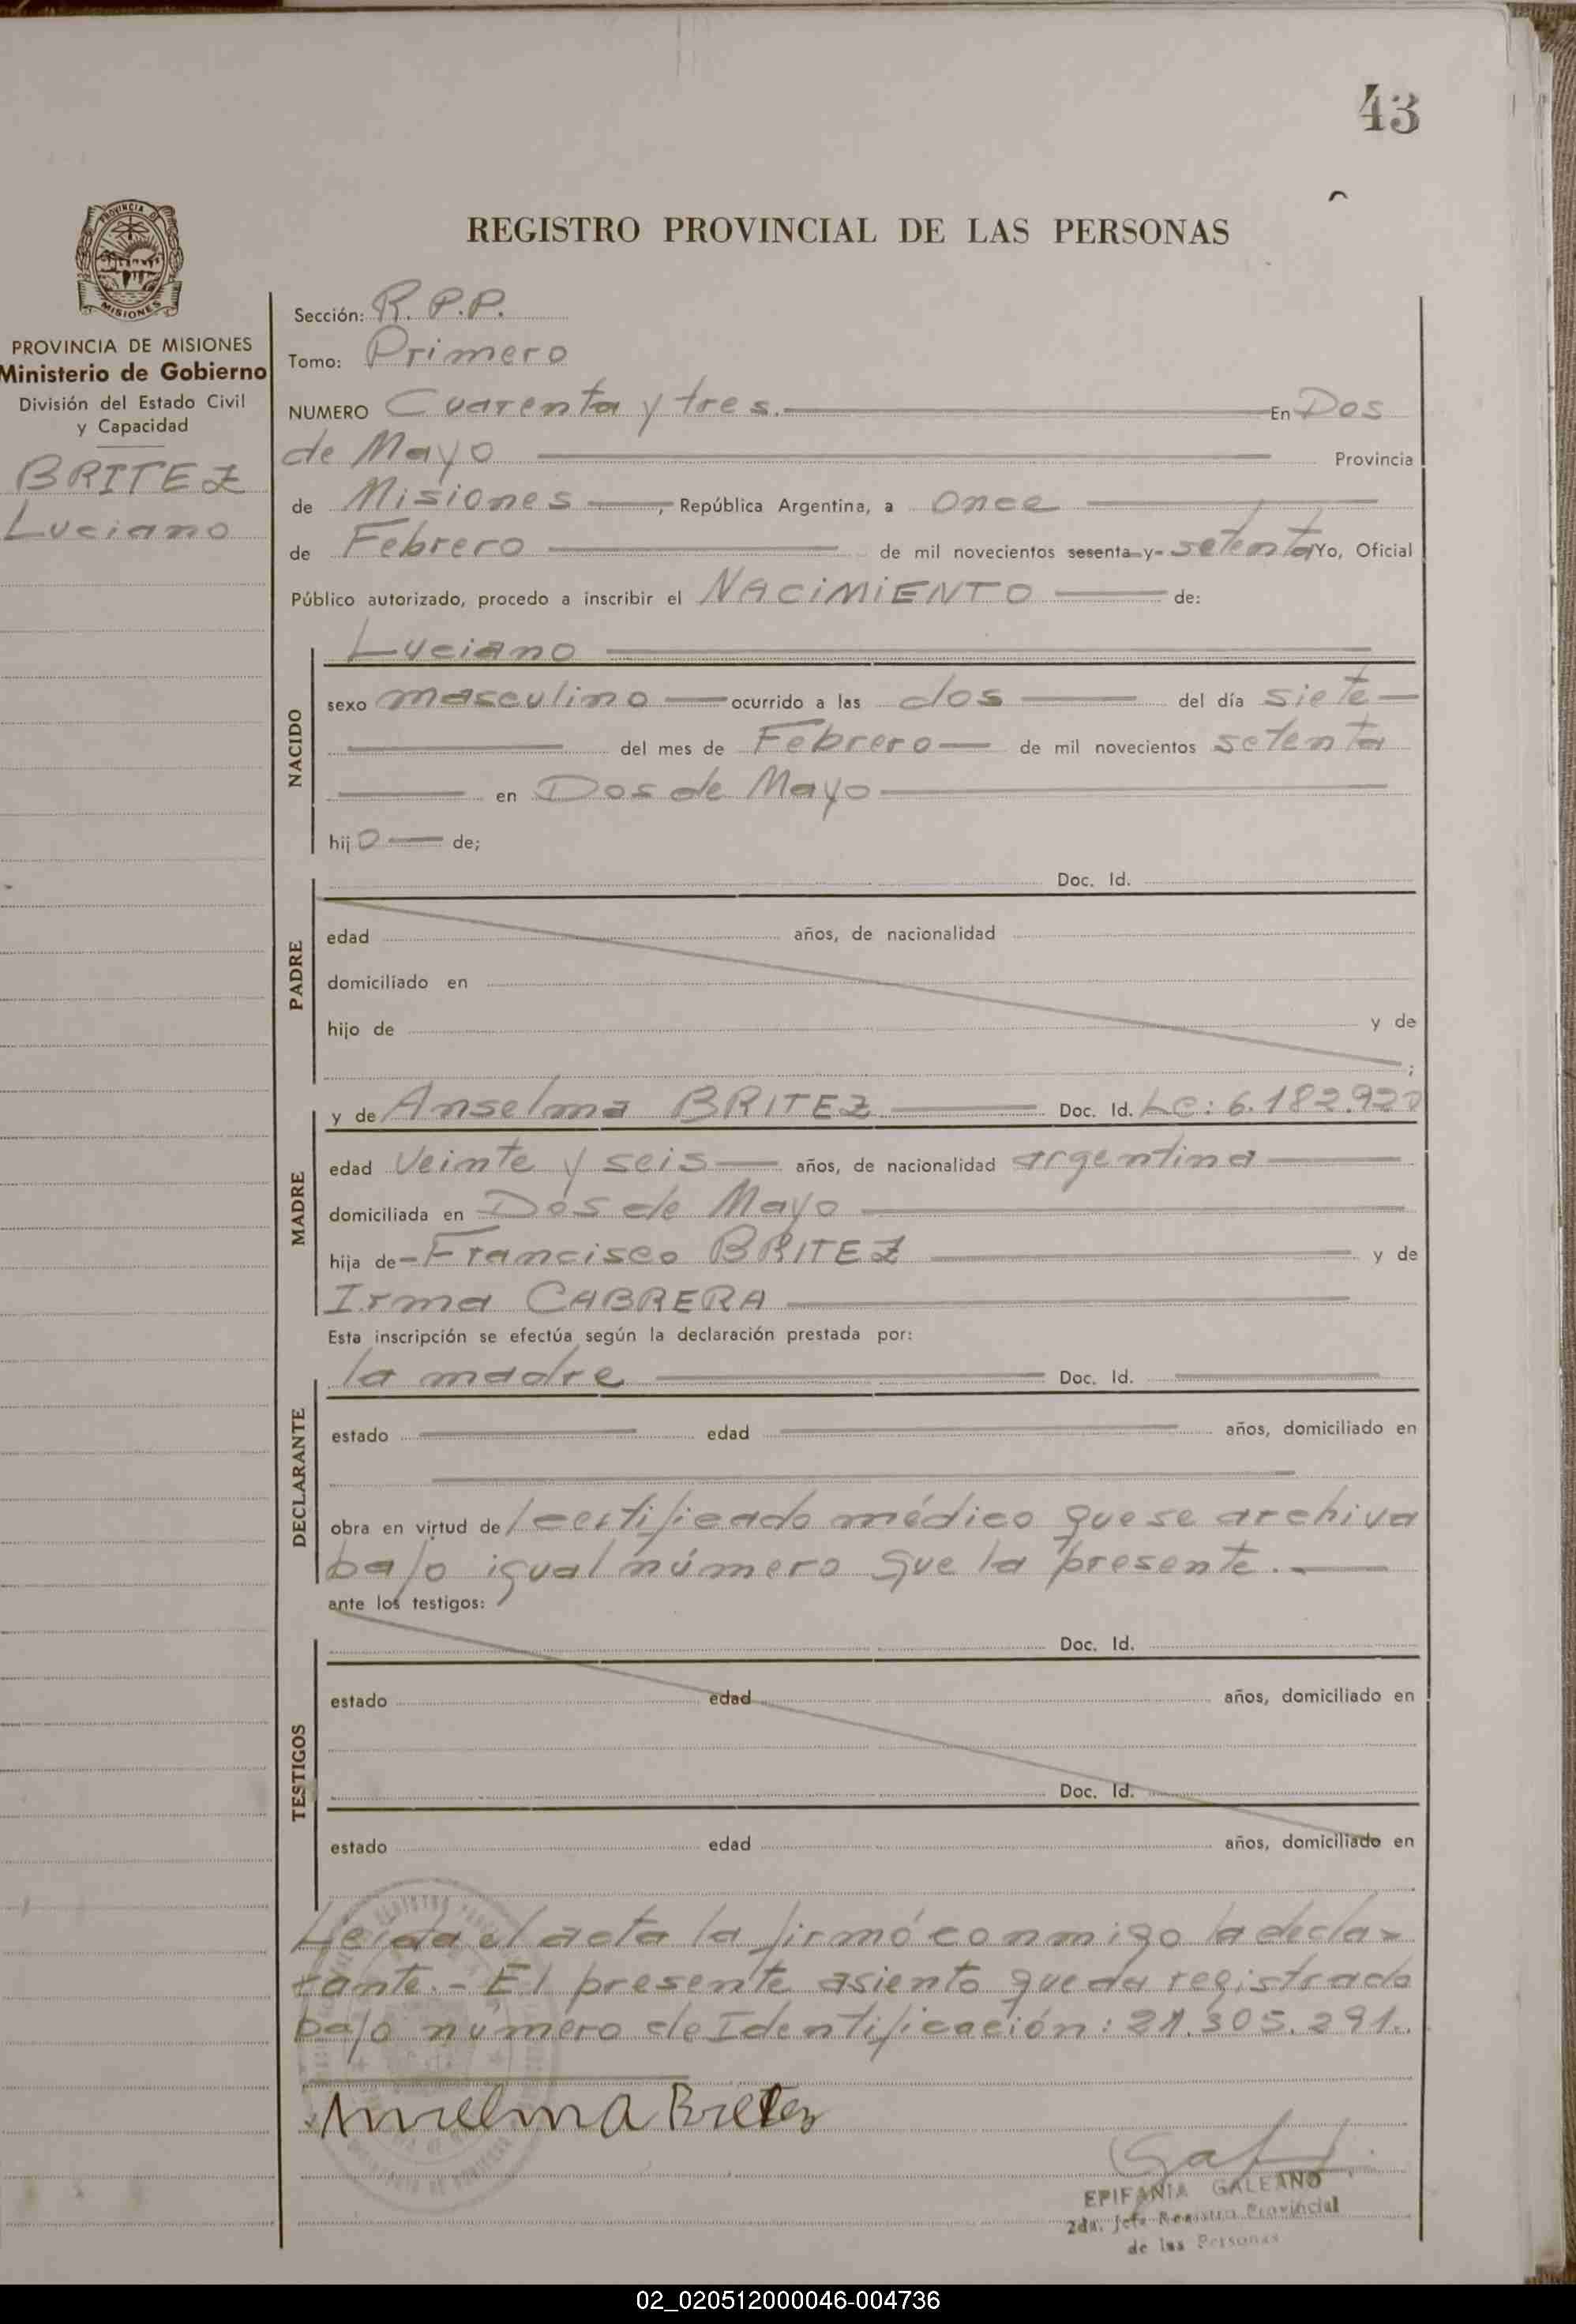 43
REGISTRO PROVINCIAL DE LAS PERSONAS
PROVINCIA DE
MISIONES
PROVINCIA DE MISIONES
Ministerio de Gobierno
División del Estado Civil
y Capacidad
BRITEZ
Luciano
Sección: R. P.P.
Tomo: Primero
NUMERO Cuarenta y tres. En Dos
de Mayo Provincia
de Misiones, República Argentina, a once
de Febrero de mil novecientos sesenta y setenta Yo, Oficial
Público autorizado, procedo a inscribir el NACIMIENTO de:
NACIDO
Luciano
sexo masculino ocurrido a las dos del día siete
del mes de Febrero de mil novecientos setenta
en Dos de Mayo
hijo de;
PADRE
Doc. Id.
edad años, de nacionalidad
domiciliado en
hijo de y de
;
MADRE
y de Anselma BRITEZ Doc. Id. LC: 6.182.920
edad veinte y seis años, de nacionalidad argentina
domiciliada en Dos de Mayo
hija de Francisco BRITEZ y de
Irma CABRERA
Esta inscripción se efectúa según la declaración prestada por:
DECLARANTE
la madre Doc. Id.
estado edad años, domiciliado en
obra en virtud de certificado médico que se archiva
bajo igual número que la presente.
ante los testigos:
TESTIGOS
Doc. Id.
estado edad años, domiciliado en
Doc. Id.
estado edad años, domiciliado en
Leída el acta la firmó conmigo la decla-
rante.- El presente asiento queda registrado
bajo número de Identificación: 21.305.291.
Anselma Britez
EPIFANIA GALEANO
2da. Jefe Registro Provincial
de las Personas
02_020512000046-004736